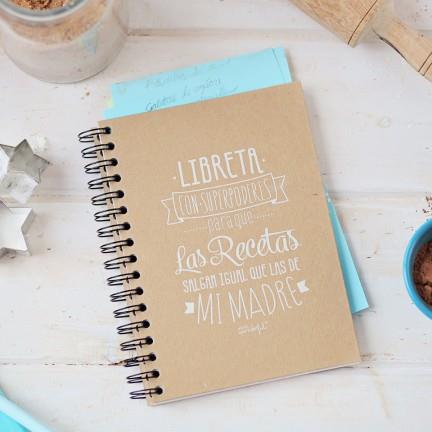 LIBRETA
CON SUPERPODERES
para que
Las Recetas
SALGAN IGUAL QUE LAS DE
MI MADRE